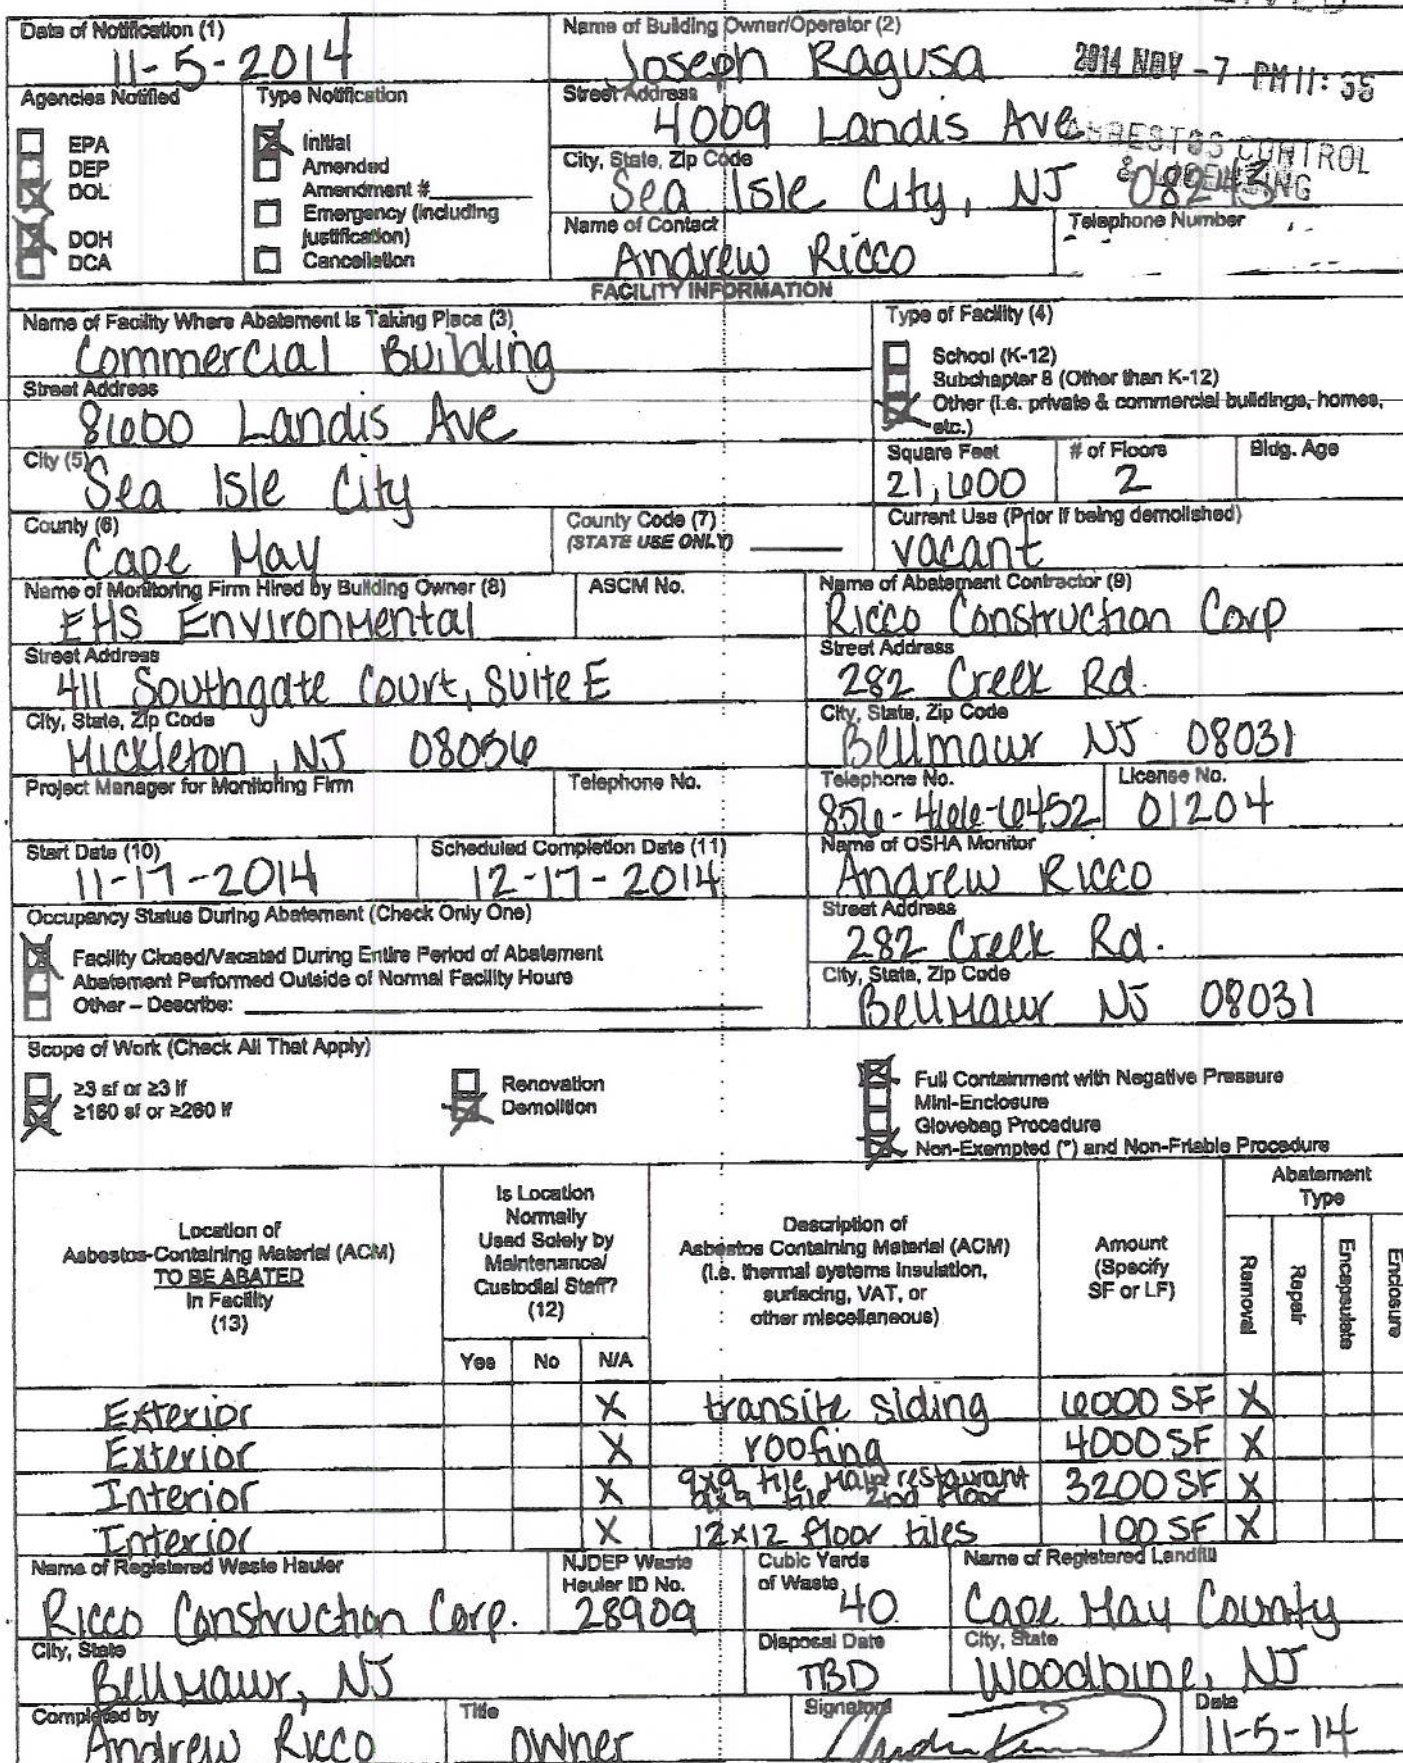 Date of Notification (1)
11-5-2014
Name of Building Owner/Operator (2)
Joseph Ragusa
2014 NOV -7 PM 11: 55
Agencies Notified
EPA
DEP
DOL
DOH
DCA
Type Notification
Initial
Amended
Amendment #
Emergency (including
justification)
Cancellation
Street Address
4009 Landis Ave
ASBESTOS CONTROL
& LICENSING
City, State, Zip Code
Sea Isle City, NJ 08243
Name of Contact
Andrew Ricco
Telephone Number
FACILITY INFORMATION
Name of Facility Where Abatement Is Taking Place (3)
Commercial Building
Type of Facility (4)
School (K-12)
Subchapter 8 (Other than K-12)
Other (i.e. private & commercial buildings, homes,
etc.)
Street Address
8600 Landis Ave
City (5)
Sea Isle City
Square Feet
21,600
# of Floors
2
Bldg. Age
County (6)
Cape May
County Code (7)
(STATE USE ONLY)
Current Use (Prior if being demolished)
vacant
Name of Monitoring Firm Hired by Building Owner (8)
EHS Environmental
ASCM No.
Name of Abatement Contractor (9)
Ricco Construction Corp
Street Address
411 Southgate Court, Suite E
Street Address
282 Creek Rd.
City, State, Zip Code
Mickleton, NJ 08056
City, State, Zip Code
Bellmawr NJ 08031
Project Manager for Monitoring Firm
Telephone No.
Telephone No.
856-466-6452
License No.
01204
Start Date (10)
11-17-2014
Scheduled Completion Date (11)
12-17-2014
Name of OSHA Monitor
Andrew Ricco
Occupancy Status During Abatement (Check Only One)
Facility Closed/Vacated During Entire Period of Abatement
Abatement Performed Outside of Normal Facility Hours
Other – Describe:
Street Address
282 Creek Rd.
City, State, Zip Code
Bellmawr NJ 08031
Scope of Work (Check All That Apply)
≥3 sf or ≥3 lf
≥160 sf or ≥260 lf
Renovation
Demolition
Full Containment with Negative Pressure
Mini-Enclosure
Glovebag Procedure
Non-Exempted (*) and Non-Friable Procedure
Location of
Asbestos-Containing Material (ACM)
TO BE ABATED
In Facility
(13)
Is Location
Normally
Used Solely by
Maintenance/
Custodial Staff?
(12)
Yes No N/A
Description of
Asbestos Containing Material (ACM)
(i.e. thermal systems insulation,
surfacing, VAT, or
other miscellaneous)
Amount
(Specify
SF or LF)
Abatement
Type
Removal
Repair
Encapsulate
Enclosure
Exterior X transite siding 6000 SF X
Exterior X roofing 4000 SF X
Interior X 9x9 tile Main restaurant
9x9 tile 2nd floor 3200 SF X
Interior X 12x12 floor tiles 100 SF X
Name of Registered Waste Hauler
Ricco Construction Corp.
NJDEP Waste
Hauler ID No.
28909
Cubic Yards
of Waste
40
Name of Registered Landfill
Cape May County
City, State
Bellmawr, NJ
Disposal Date
TBD
City, State
Woodbine, NJ
Completed by
Andrew Ricco
Title
owner
Signature
Date
11-5-14